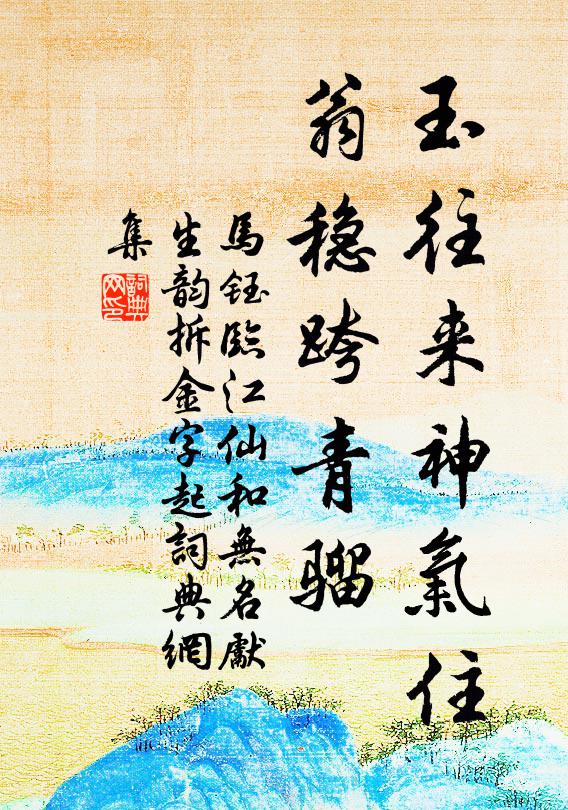 玉往来神氣住
翁稳跨青骝
馬鈺臨江仙和無名獻
生韵拆金字起詞典網
集
詞典
网印